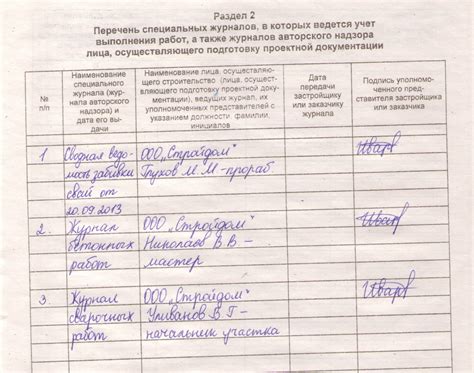 Раздел 2
Перечень специальных журналов, в которых ведется учет
выполнения работ, а также журналов авторского надзора
лица, осуществляющего подготовку проектной документации
№
п/п
Наименование
специального
журнала (жур-
нала авторского
надзора) и
дата его вы-
дачи
Наименование лица, осуществляю-
щего строительство (лица, осущест-
вляющего подготовку проектной доку-
ментации), ведущих журнал, их
уполномоченных представителей с
указанием должности фамилии,
инициалов
Дата
передачи
застройщику
или заказчику
журнала
Подпись уполномо-
ченного пред-
ставителя застройщика
или заказчика
1
Сводная ведо-
мость забивки
свай от
20.09.2013
ООО „Стройдом"
Глухов М.М-прораб
Иваров
2.
Журнал
бетонных
работ
ООО „Стройдом"
Николаев В.В-
мастер
Иваров
3.
Журнал
сварочных
работ
ООО „Стройдом"
Уливанов В.Г-
начальник участка
Иваров